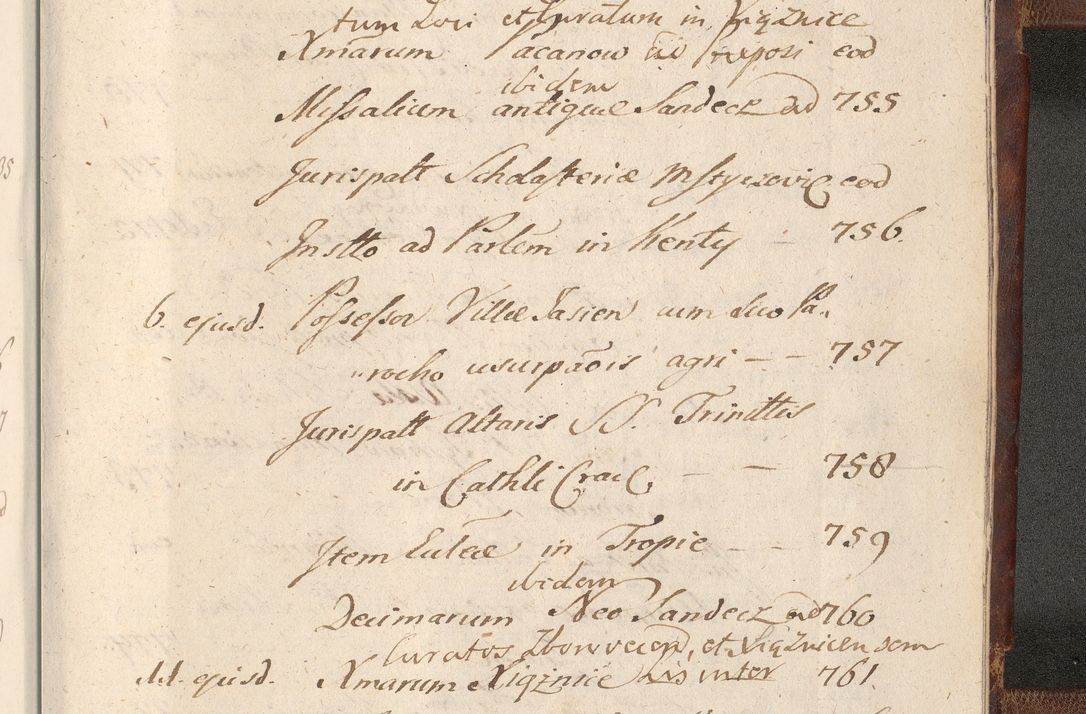 tum Loci et Curatum in Xiąznice
Xmarum Pacanow
ibidem
eod
Missalium antiquæ Sandecz ad 755
Jurispatt Scholasteriæ Mstyczoviẽ eod
Instto ad Parlem in Kenty — 756.
6. ejusd. Possessor Villæ Jasien cum suo Pa„
„rocho usurpaõis agri — — 757
Jurispatt Altaris SS. Trinittis
in Cathli Crac. — — 758
Item Eulẽæ in Tropie — — 759
ibidem
Decimarum Neo Sandecz ad 760
Curatos Zbowvecen, et Xiąznicensem
11. ejusd. Xmarum Xiąznice Lis inter 761.